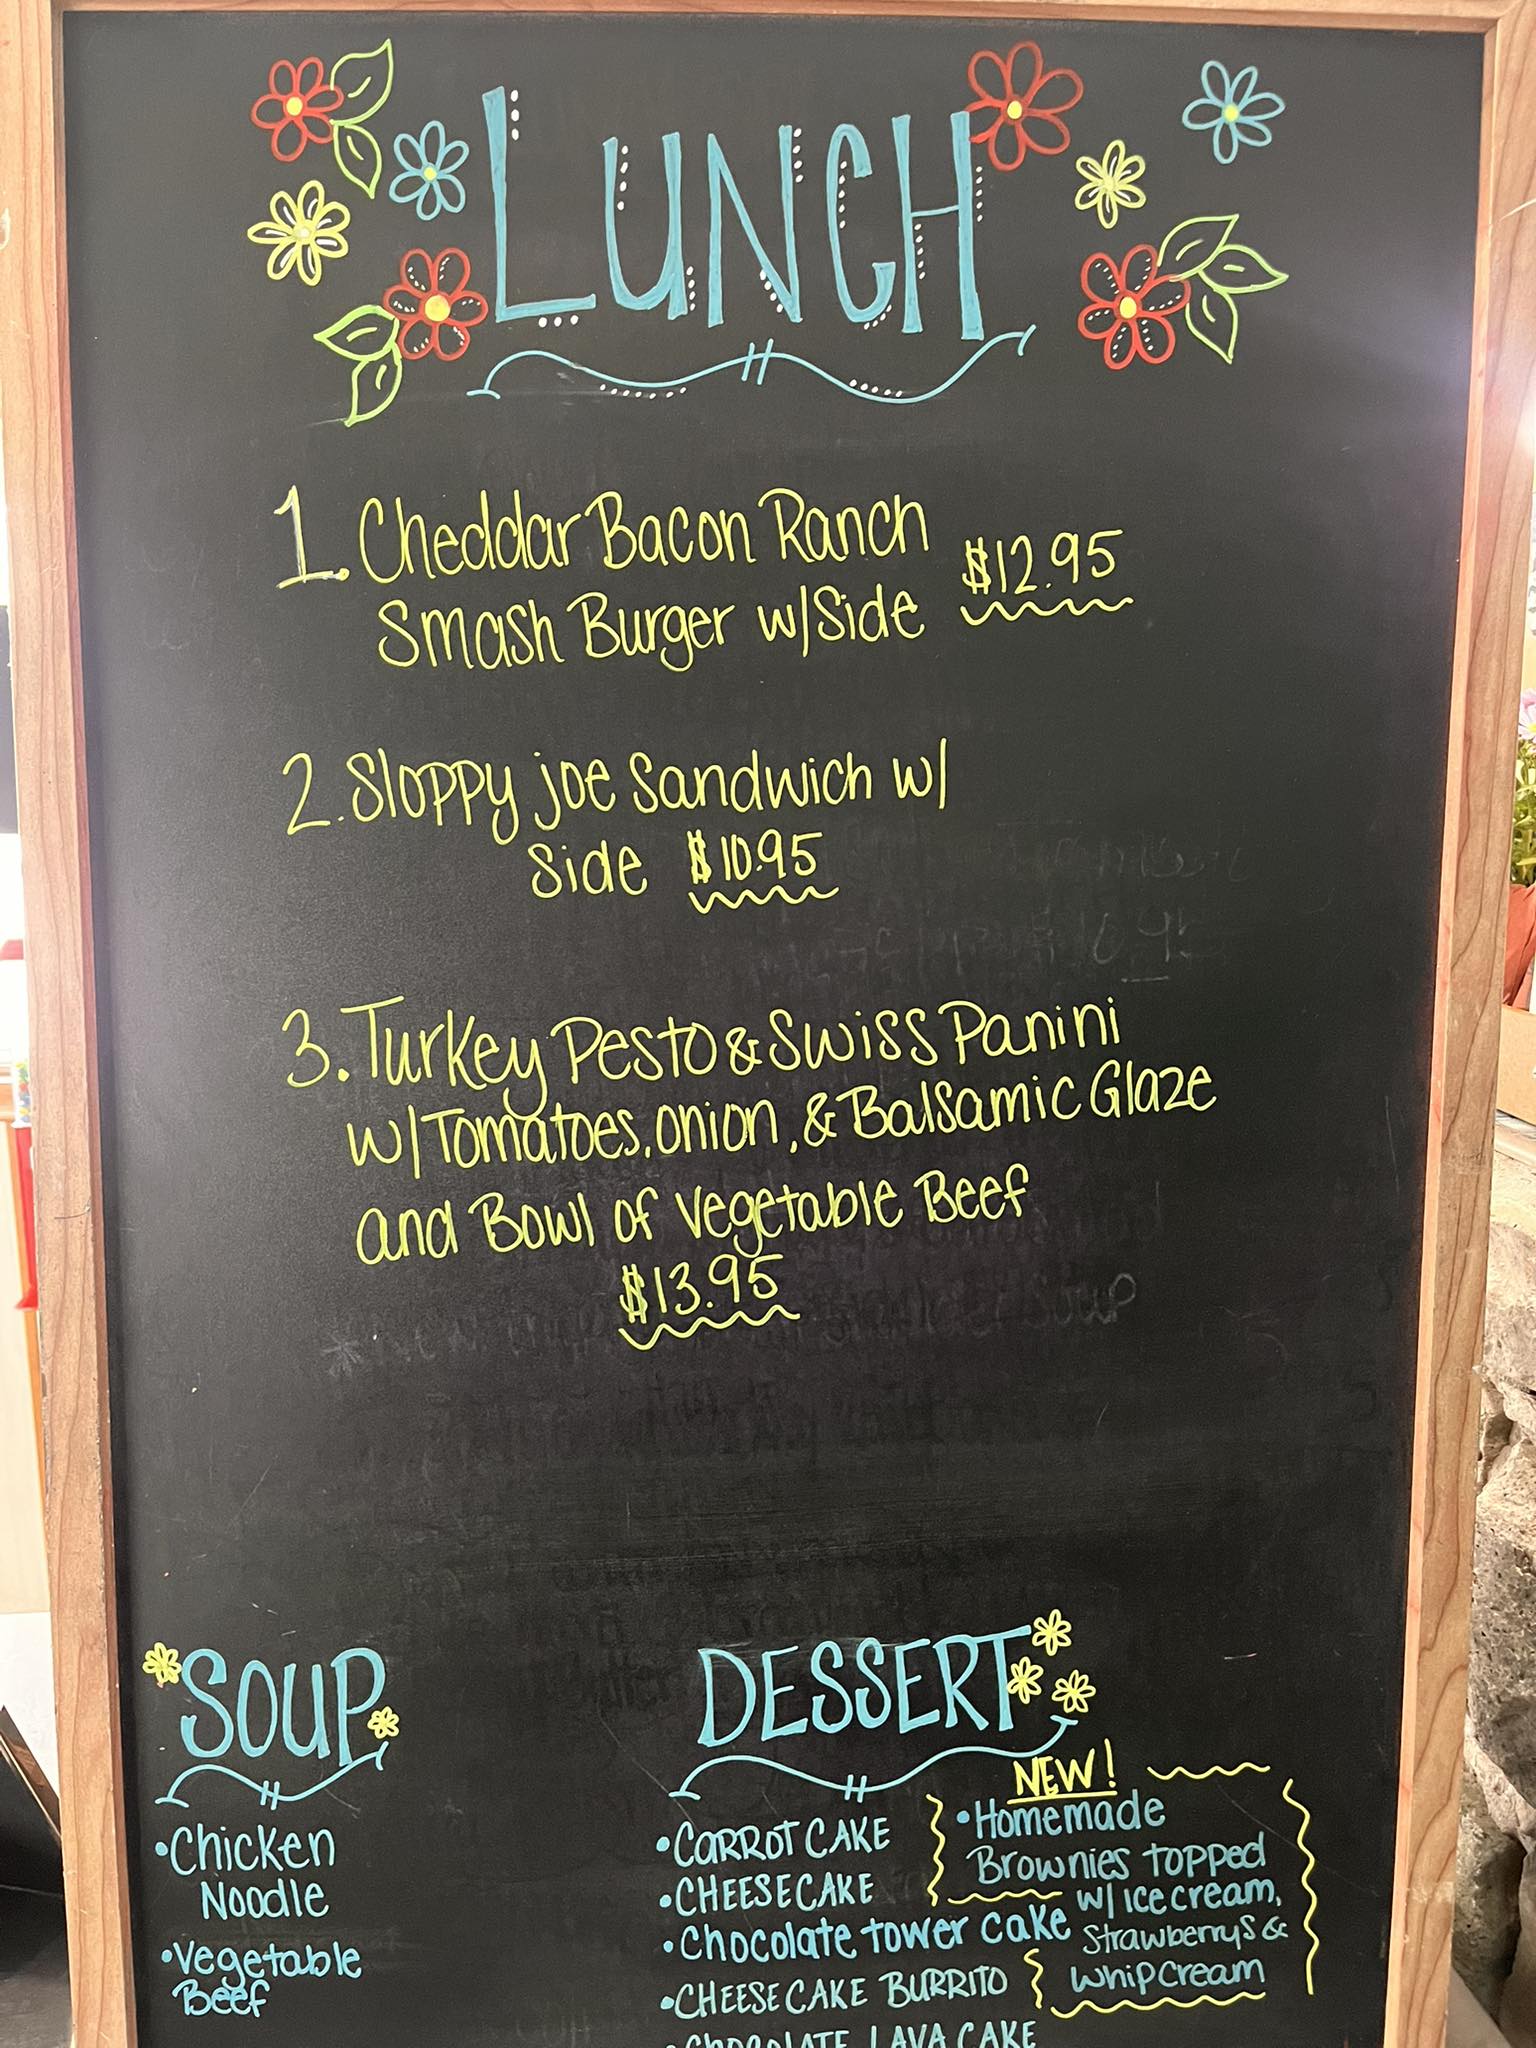 LUNCH
1. Cheddar Bacon Ranch
Smash Burger w/Side $12.95
2. Sloppy joe Sandwich w/
Side $10.95
3. Turkey Pesto & Swiss Panini
w/Tomatoes, onion, & Balsamic Glaze
and Bowl of Vegetable Beef
$13.95
SOUP
•Chicken
Noodle
•Vegetable
Beef
DESSERT
•CARROT CAKE
•CHEESECAKE
•Chocolate tower cake
•CHEESECAKE BURRITO
•CHOCOLATE LAVA CAKE
NEW!
•Homemade
Brownies topped
w/ ice cream,
Strawberrys &
whip cream